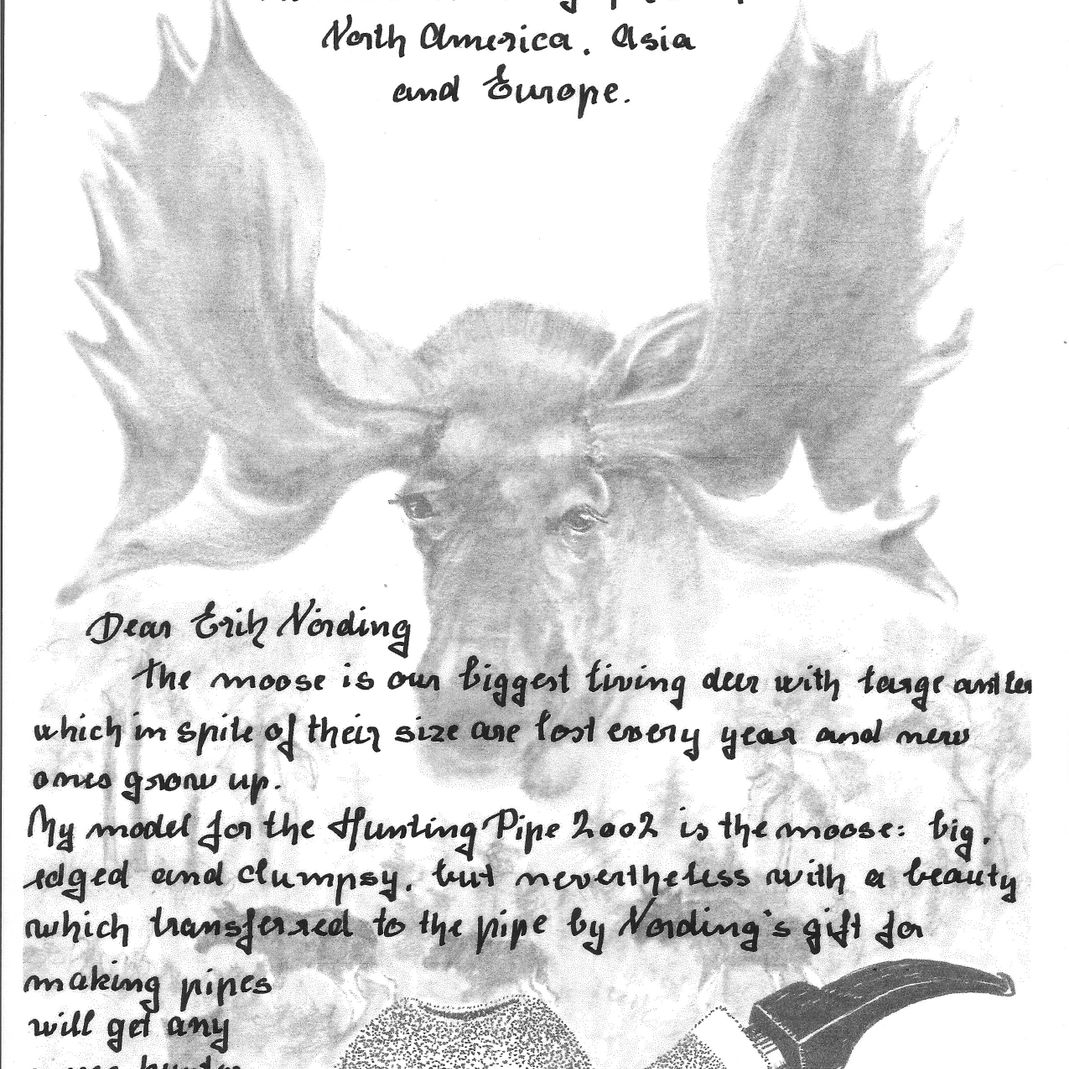 North America, Asia
and Europe.
Dear Erik Nörding
The moose is our biggest living deer with large antler
which in spite of their size are lost every year and new
ones grow up.
My model for the Hunting Pipe 2002 is the moose: big,
edged and clumpsy, but nevertheless with a beauty
which transferred to the pipe by Nording's gift for
making pipes
will get any